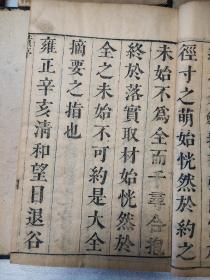 徑寸之萌始恍然於約之
未始不爲全而千尋合抱
終於落實取材始恍然於
全之未始不可約是大全
摘要之指也
雍正辛亥清和望日退谷